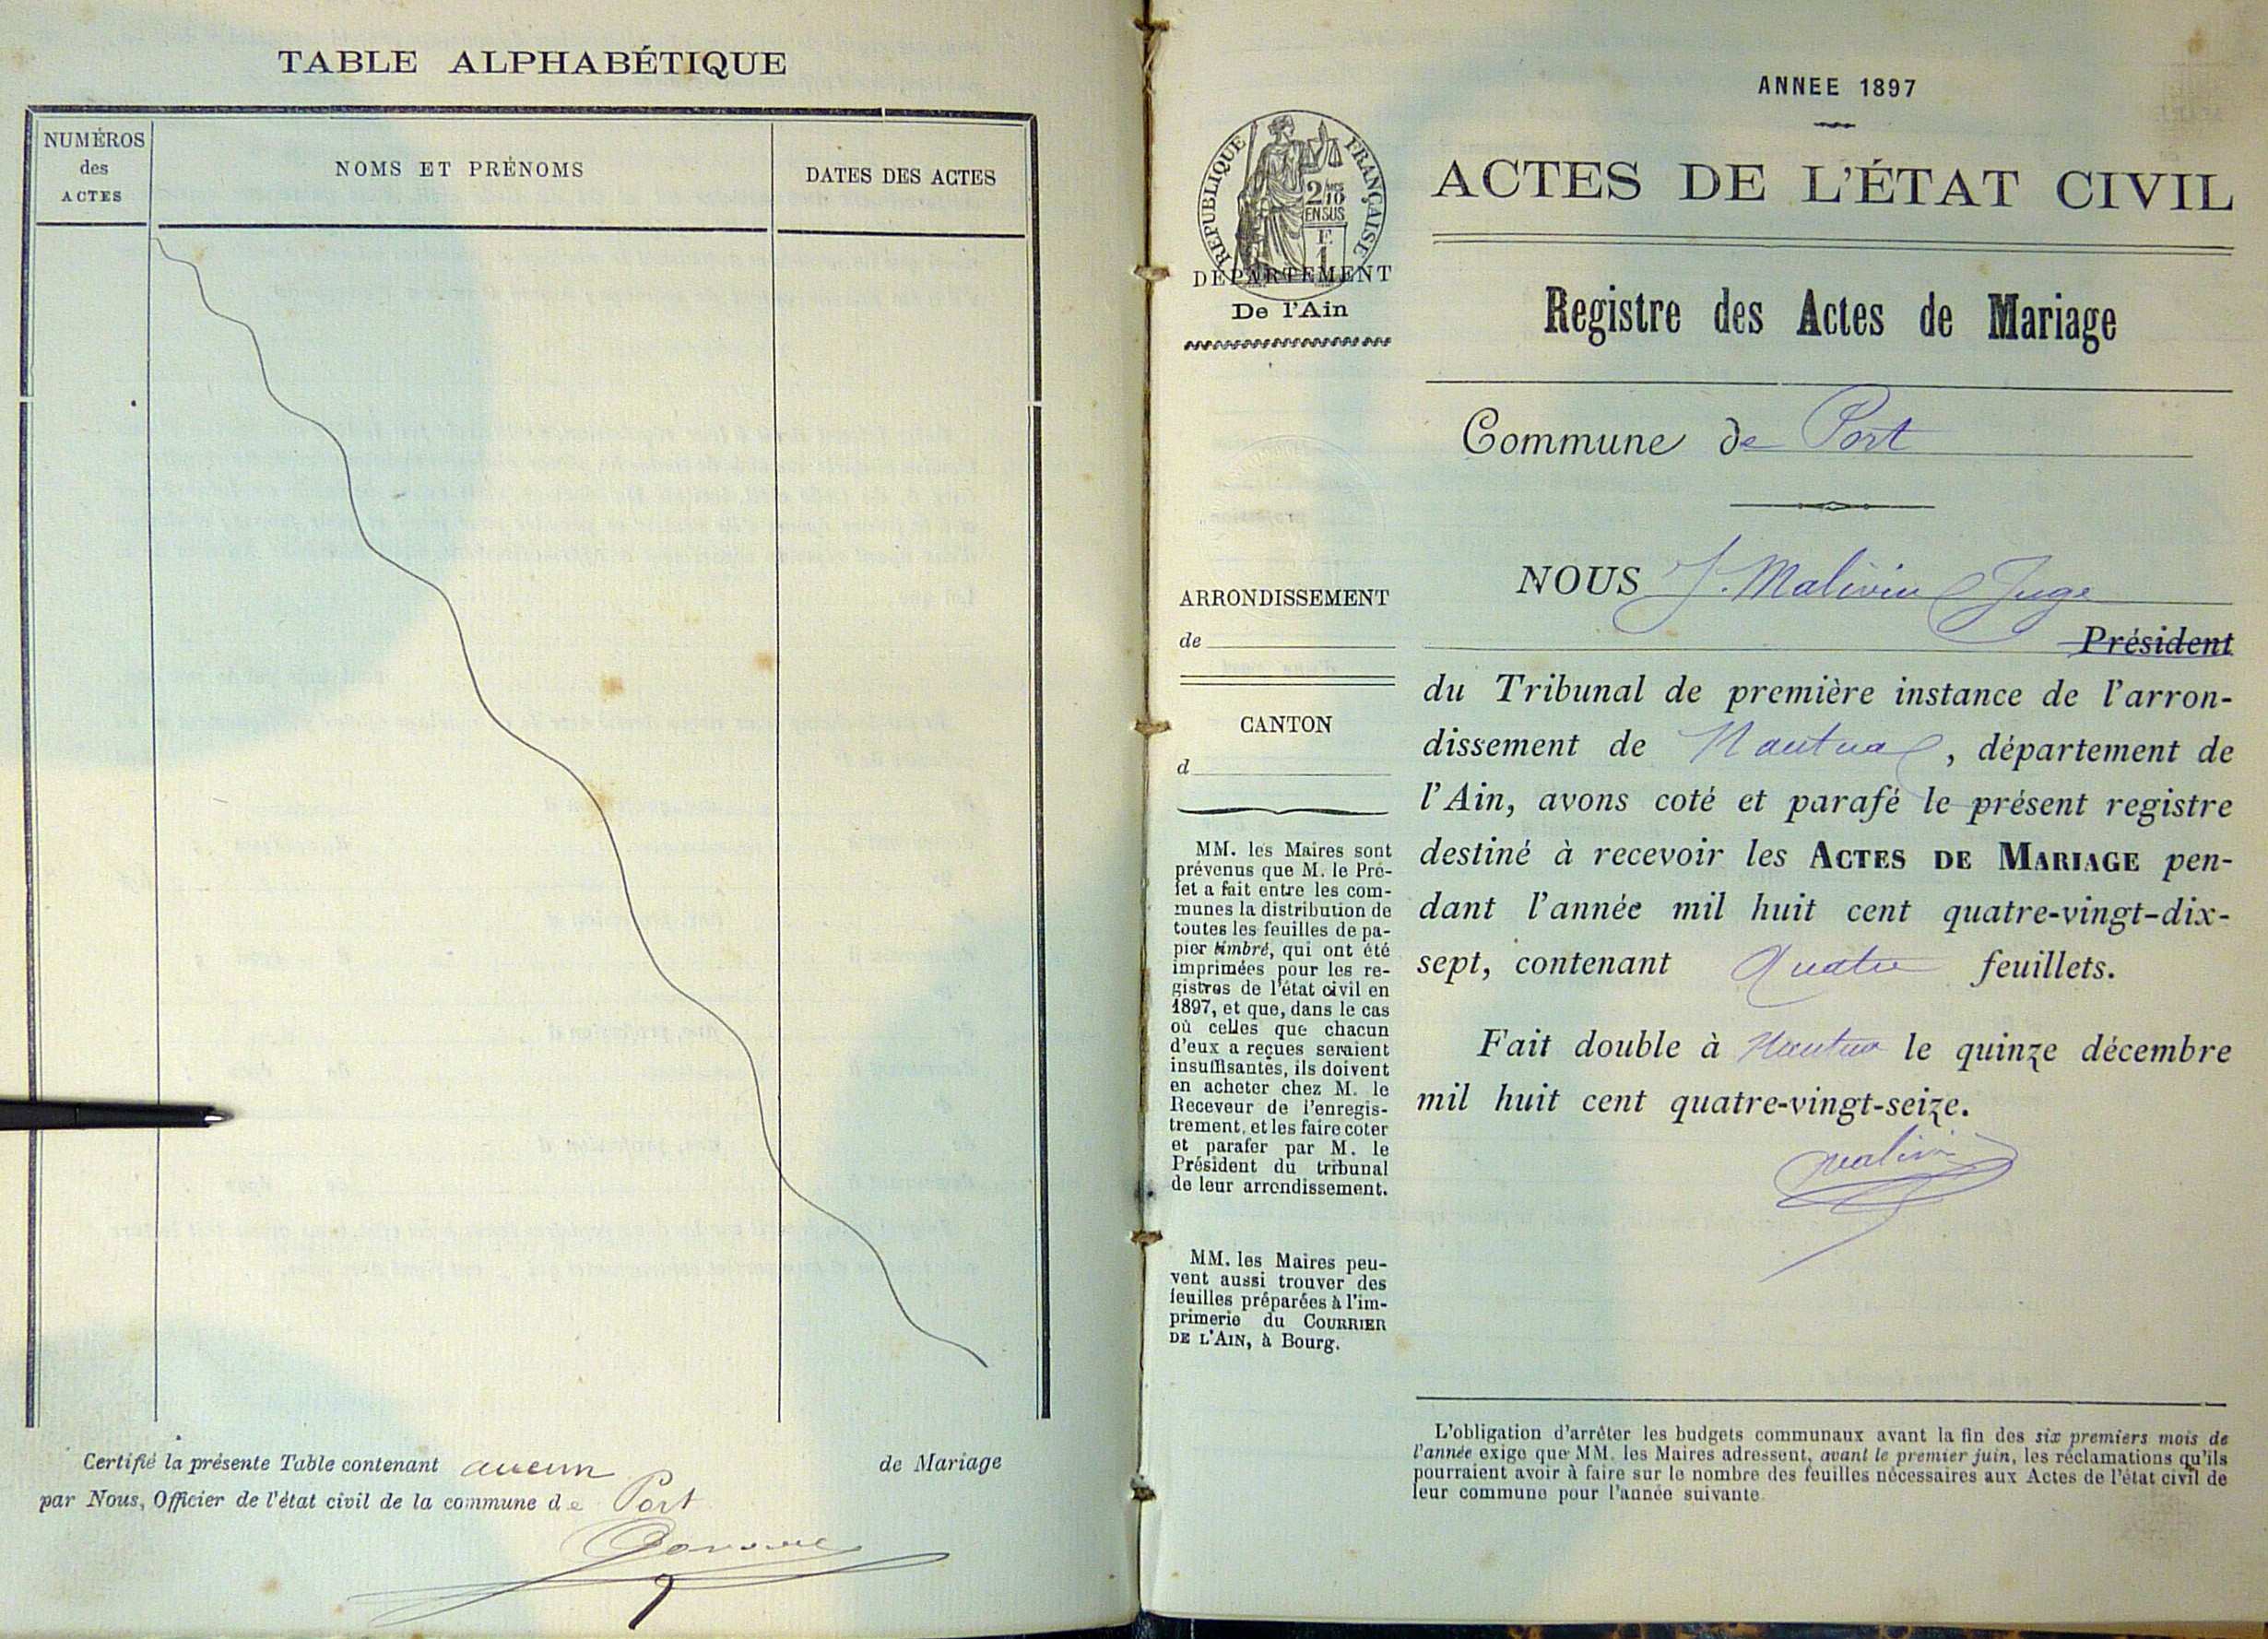 TABLE ALPHABÉTIQUE
NUMÉROS
des
ACTES
NOMS ET PRÉNOMS
DATES DES ACTES
Certifié la présente Table contenant aucun de Mariage
par Nous, Officier de l'état civil de la commune de Port
ANNEE 1897
RÉPUBLIQUE FRANÇAISE
2/10
EN SUS
F
1
DÉPARTEMENT
De l'Ain
ACTES DE L'ÉTAT CIVIL
Registre des Actes de Mariage
Commune de Port
ARRONDISSEMENT
de
CANTON
d
MM. les Maires sont
prévenus que M. le Pré-
fet a fait entre les com-
munes la distribution de
toutes les feuilles de pa-
pier timbré, qui ont été
imprimées pour les re-
gistres de l'état civil en
1897, et que, dans le cas
où celles que chacun
d'eux a reçues seraient
insuffisantes, ils doivent
en acheter chez M. le
Receveur de l'enregis-
trement, et les faire coter
et parafer par M. le
Président du tribunal
de leur arrondissement.
MM. les Maires peu-
vent aussi trouver des
feuilles préparées à l'im-
primerie du COURRIER
DE L'AIN, à Bourg.
NOUS J. Malivin Juge
Président
du Tribunal de première instance de l'arron-
dissement de Nantua, département de
l'Ain, avons coté et parafé le présent registre
destiné à recevoir les ACTES DE MARIAGE pen-
dant l'année mil huit cent quatre-vingt-dix-
sept, contenant Quatre feuillets.
Fait double à Nantua le quinze décembre
mil huit cent quatre-vingt-seize.
Malivin
L'obligation d'arrêter les budgets communaux avant la fin des six premiers mois de
l'année exige que MM. les Maires adressent, avant le premier juin, les réclamations qu'ils
pourraient avoir à faire sur le nombre des feuilles nécessaires aux Actes de l'état civil de
leur commune pour l'année suivante.